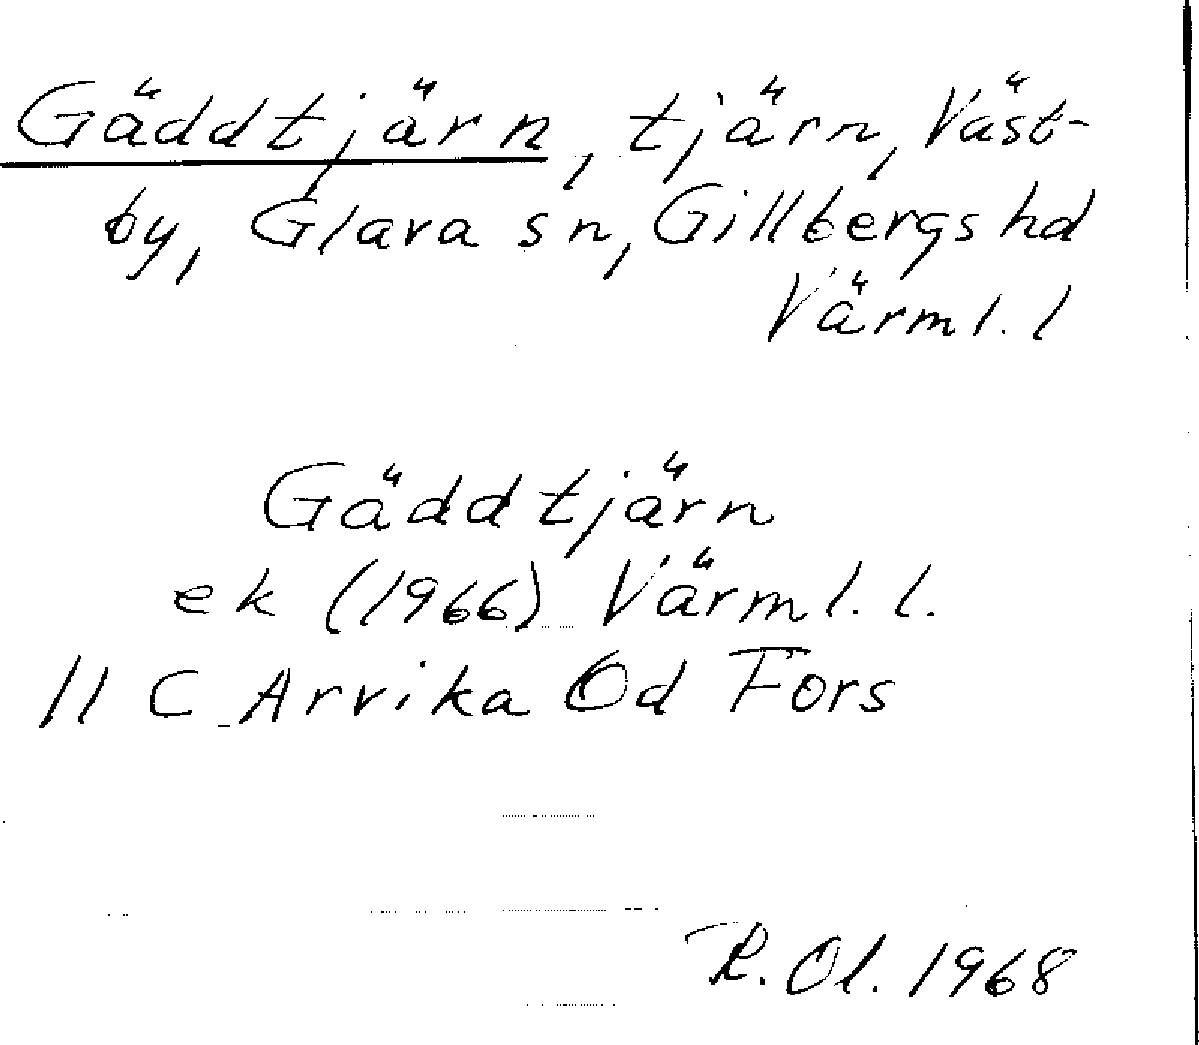 Gäddtjärn, tjärn, Väst-
by, Glava sn, Gillbergs hd
Värml. l
Gäddtjärn
ek (1966) Värml. l.
11 C Arvika Od Fors
R. Ol. 1968